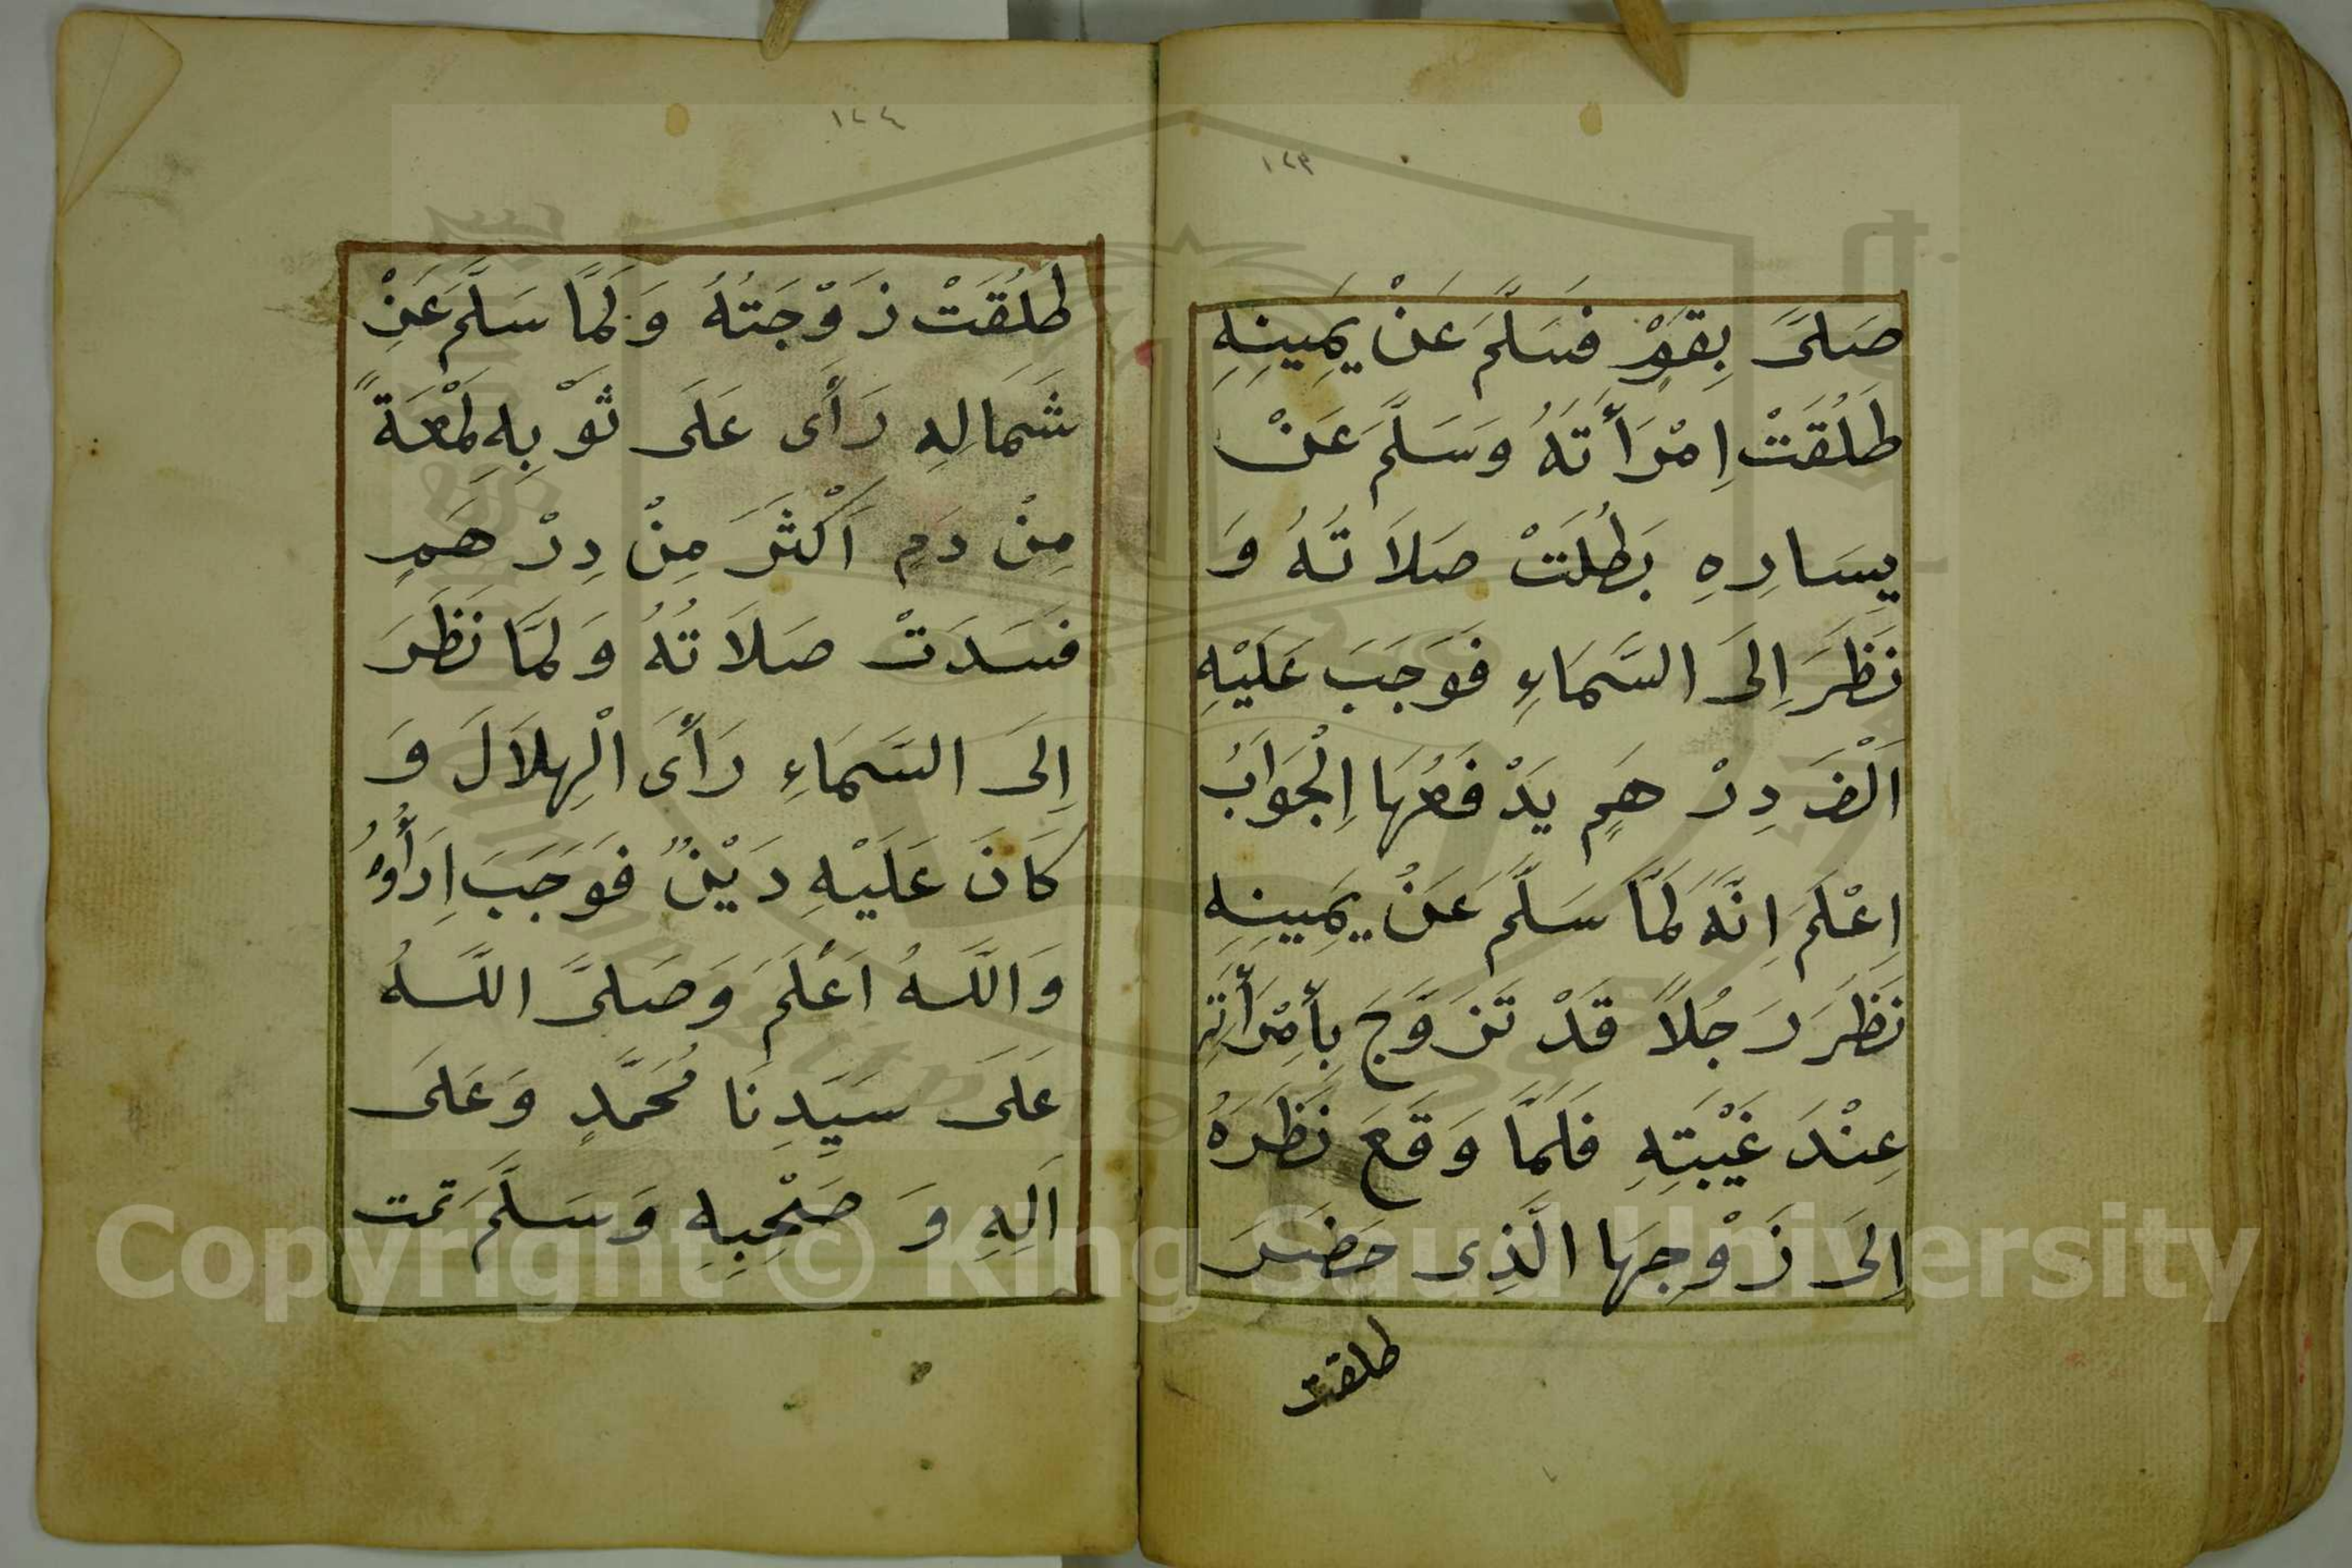 ١٢٣
صَلَّى بِقَوْمٍ فَسَلَّمَ عَنْ يَمِينِهِ
طَلُقَتْ اِمْرَأَتَهُ وَسَلَّمَ عَنْ
يسَارِهِ بَطُلَتْ صَلَاتُهُ وَ
نَظَرَ اِلَى السَّمَاءِ فَوَجَبَ عَلَيْهِ
اَلْفَ دِرْهَمٍ يَدْفَعُهَا اِلْجَوَابُ
اِعْلَمَ اِنَّهُ لَمَّا سَلَّمَ عَنْ يَمِينِهِ
نَظَرَ رَجُلاً قَدْ تَزَوَّجَ بِأمْرَأَتِهِ
عِنْدَ غَيْبَتِهِ فَلَمَّا وَقَعَ نَظَرَهُ
اِلَى زَوْجِهَا الَّذِى حَضَرَ
طلقت
١٢٤
طَلُقَتْ زَوْجَتُهُ وَلَمَّا سَلَّمَ عَنْ
شَمَالِهِ رَأَى عَلَى ثَوْبِهِ لَمْعَةً
مِنْ دَمٍ اَكْثَرَ مِنْ دِرْهَمٍ
فَسَدَتْ صَلَاتُهُ وَلَمَّا نَظَرَ
اِلَى السَّمَاءِ رَأَى الْهِلَالَ وَ
كَانَ عَلَيْهِ دَيْنٌ فَوَجَبَ اِدَأُوهُ
وَاللَّهُ اَعْلَمَ وَصَلَّى اللَّهُ
عَلَى سَيِّدِنَا مُحَمَّدٍ وَعَلَى
اَلِهِ وَ صَحْبِهِ وَسَلَّمَ تمت
Copyright © King Saud University